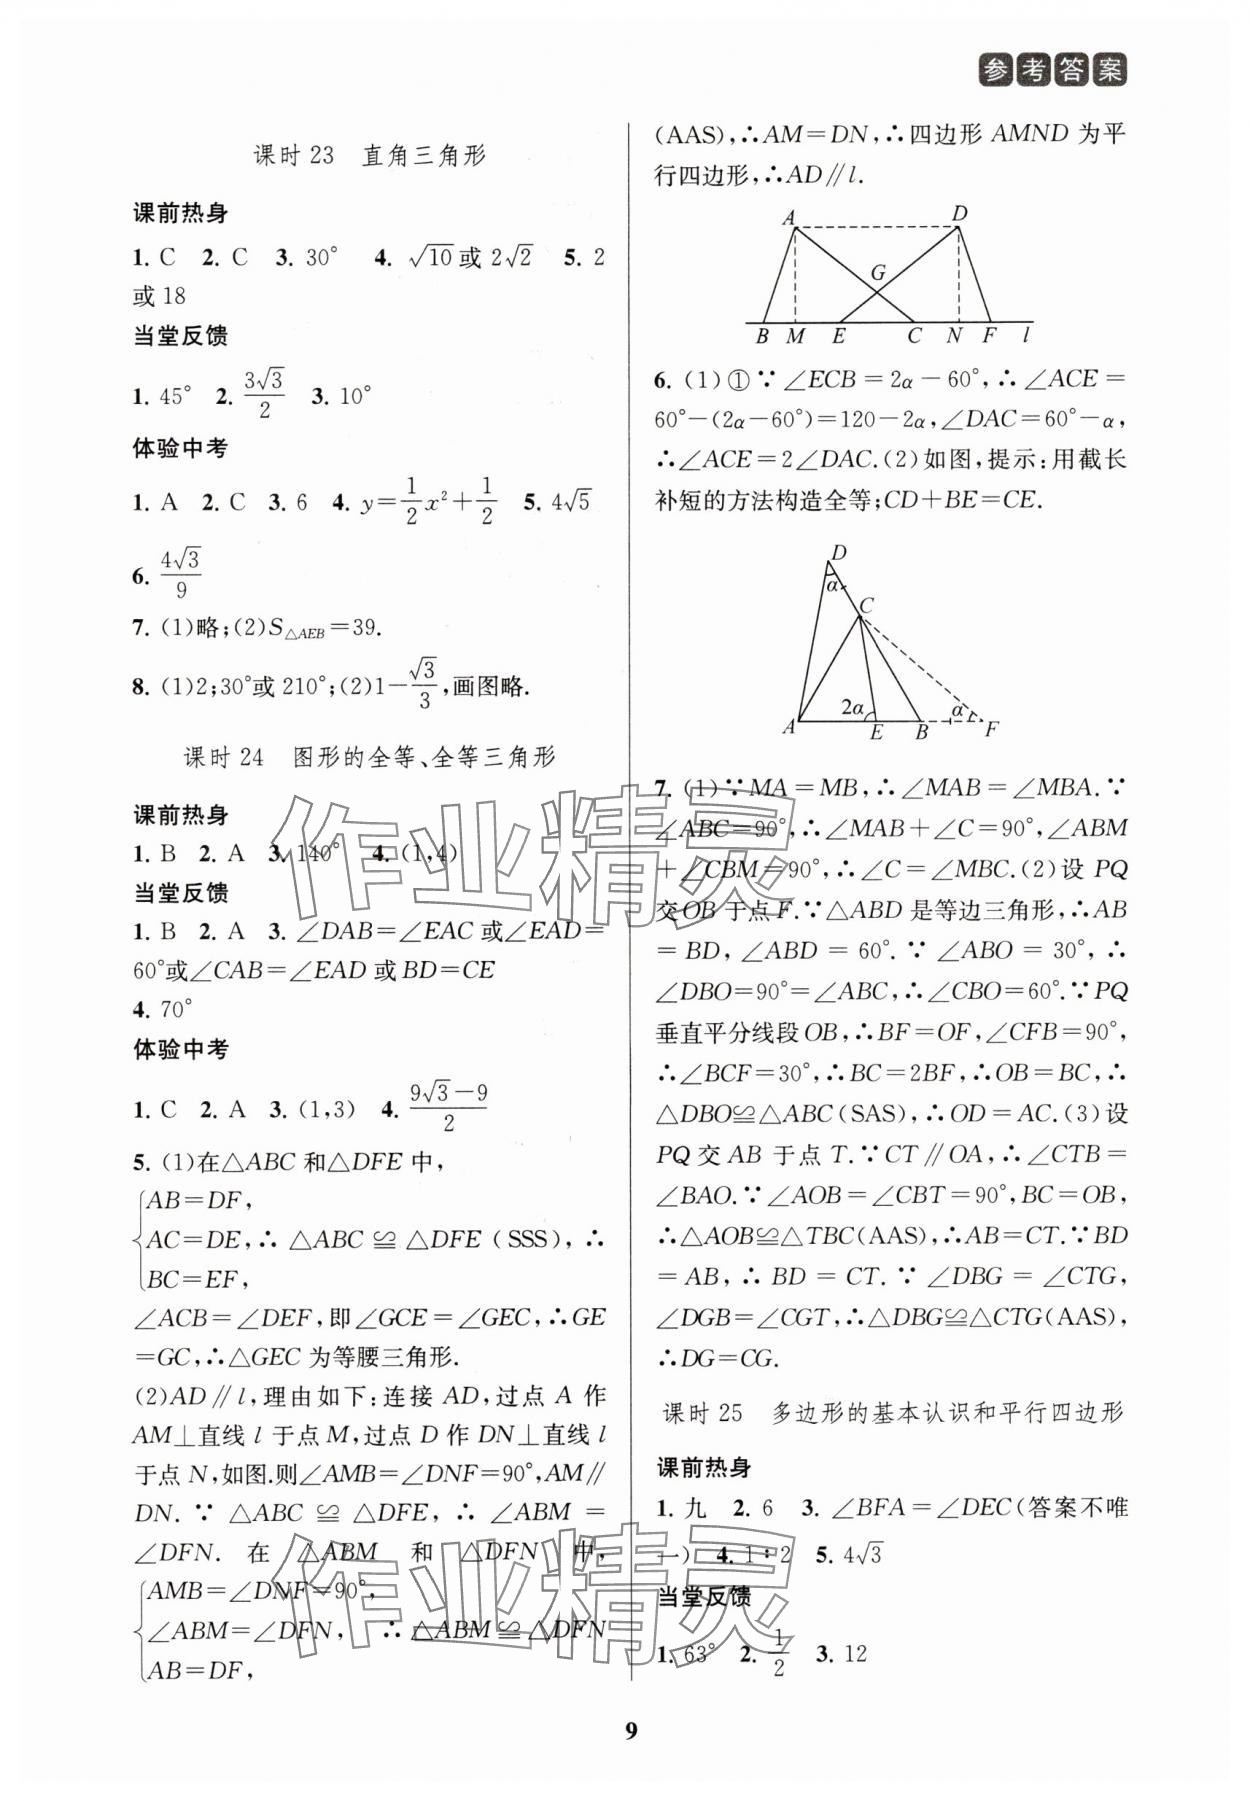 参考答案
课时 23 直角三角形
课前热身
1. C 2. C 3. 30° 4. √10或 2√2 5. 2
或 18
当堂反馈
1. 45° 2. 3√3/2 3. 10°
体验中考
1. A 2. C 3. 6 4. y=1/2x²+1/2 5. 4√5
6. 4√3/9
7. (1)略;(2)S△AEB=39.
8. (1)2;30°或 210°;(2)1-√3/3,画图略.
课时 24 图形的全等、全等三角形
课前热身
1. B 2. A 3. 140° 4. (1,4)
当堂反馈
1. B 2. A 3. ∠DAB=∠EAC 或∠EAD=
60°或∠CAB=∠EAD 或 BD=CE
4. 70°
体验中考
1. C 2. A 3. (1,3) 4. (9√3-9)/2
5. (1)在△ABC 和△DFE 中,
AB=DF,
AC=DE,∴ △ABC ≌ △DFE (SSS), ∴
BC=EF,
∠ACB=∠DEF,即∠GCE=∠GEC,∴GE
=GC,∴△GEC 为等腰三角形.
(2)AD∥l,理由如下:连接 AD,过点 A 作
AM⊥直线 l 于点 M,过点 D 作 DN⊥直线 l
于点 N,如图.则∠AMB=∠DNF=90°,AM∥
DN. ∵ △ABC ≌ △DFE, ∴ ∠ABM =
∠DFN. 在 △ABM 和 △DFN 中,
AMB=∠DNF=90°,
∠ABM=∠DFN, ∴ △ABM≌△DFN
AB=DF,
(AAS),∴AM=DN,∴四边形 AMND 为平
行四边形,∴AD∥l.
A D
G
B M E C N F l
6. (1)①∵∠ECB=2α-60°,∴∠ACE=
60°-(2α-60°)=120-2α,∠DAC=60°-α,
∴∠ACE=2∠DAC.(2)如图,提示:用截长
补短的方法构造全等;CD+BE=CE.
D
α
C
2α α
A E B F
7. (1)∵MA=MB,∴∠MAB=∠MBA.∵
∠ABC=90°,∴∠MAB+∠C=90°,∠ABM
+∠CBM=90°,∴∠C=∠MBC.(2)设 PQ
交 OB 于点 F.∵△ABD 是等边三角形,∴AB
=BD,∠ABD = 60°.∵ ∠ABO = 30°, ∴
∠DBO=90°=∠ABC,∴∠CBO=60°.∵PQ
垂直平分线段 OB,∴BF=OF,∠CFB=90°,
∴∠BCF=30°,∴BC=2BF,∴OB=BC,∴
△DBO≌△ABC(SAS),∴OD=AC.(3)设
PQ 交 AB 于点 T.∵CT∥OA,∴∠CTB=
∠BAO.∵∠AOB=∠CBT=90°,BC=OB,
∴△AOB≌△TBC(AAS),∴AB=CT.∵BD
=AB,∴ BD = CT.∵ ∠DBG = ∠CTG,
∠DGB=∠CGT,∴△DBG≌△CTG(AAS),
∴DG=CG.
课时 25 多边形的基本认识和平行四边形
课前热身
1. 九 2. 6 3. ∠BFA=∠DEC(答案不唯
一) 4. 1∶2 5. 4√3
当堂反馈
1. 63° 2. 1/2 3. 12
作业精灵
作业精灵
9